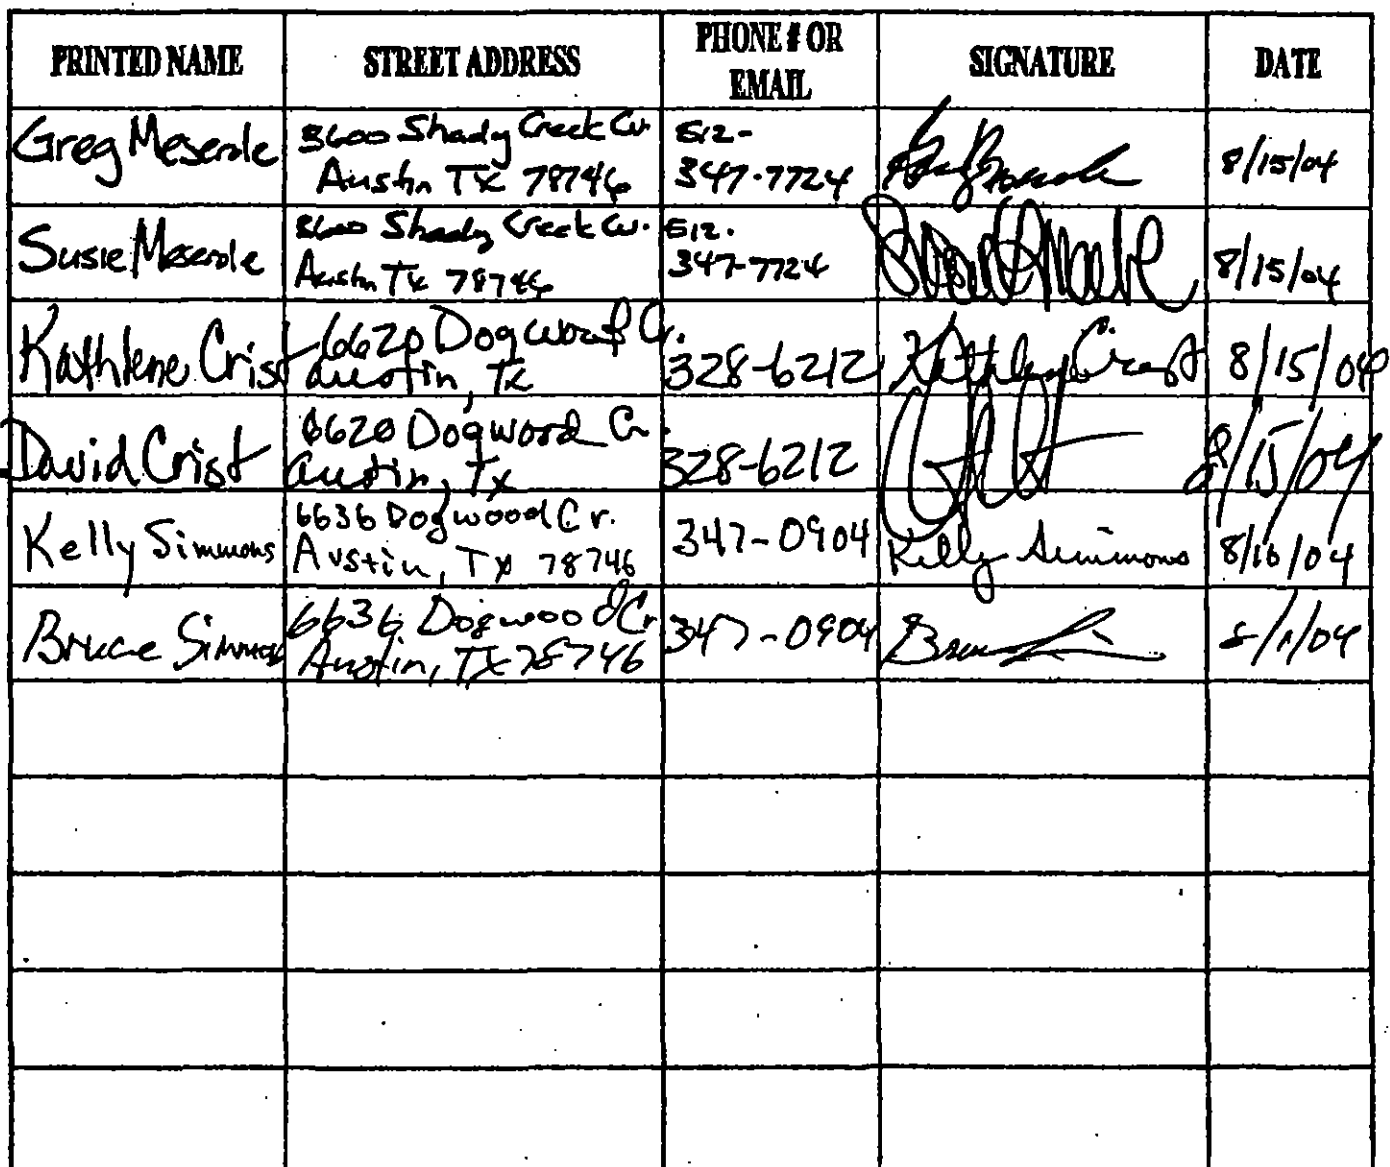 PRINTED NAME STREET ADDRESS PHONE # OR EMAIL SIGNATURE DATE
Greg Meserole 3600 Shady Creek Cv. 512-
Austin TX 78746 347-7724 8/15/04
Susie Meserole 3600 Shady Creek Cv. 512.
Austin TX 78746 347-7724 8/15/04
Kathlene Crist 6620 Dogwood Cr.
Austin, Tx 328-6212 Kathlene Crist 8/15/04
David Crist 6620 Dogwood Cr.
Austin, Tx 328-6212 8/15/04
Kelly Simmons 6636 Dogwood Cr.
Austin, TX 78746 347-0904 Kelly Simmons 8/16/04
Bruce Simmons 6636 Dogwood Cr
Austin, TX 78746 347-0904 8/1/04